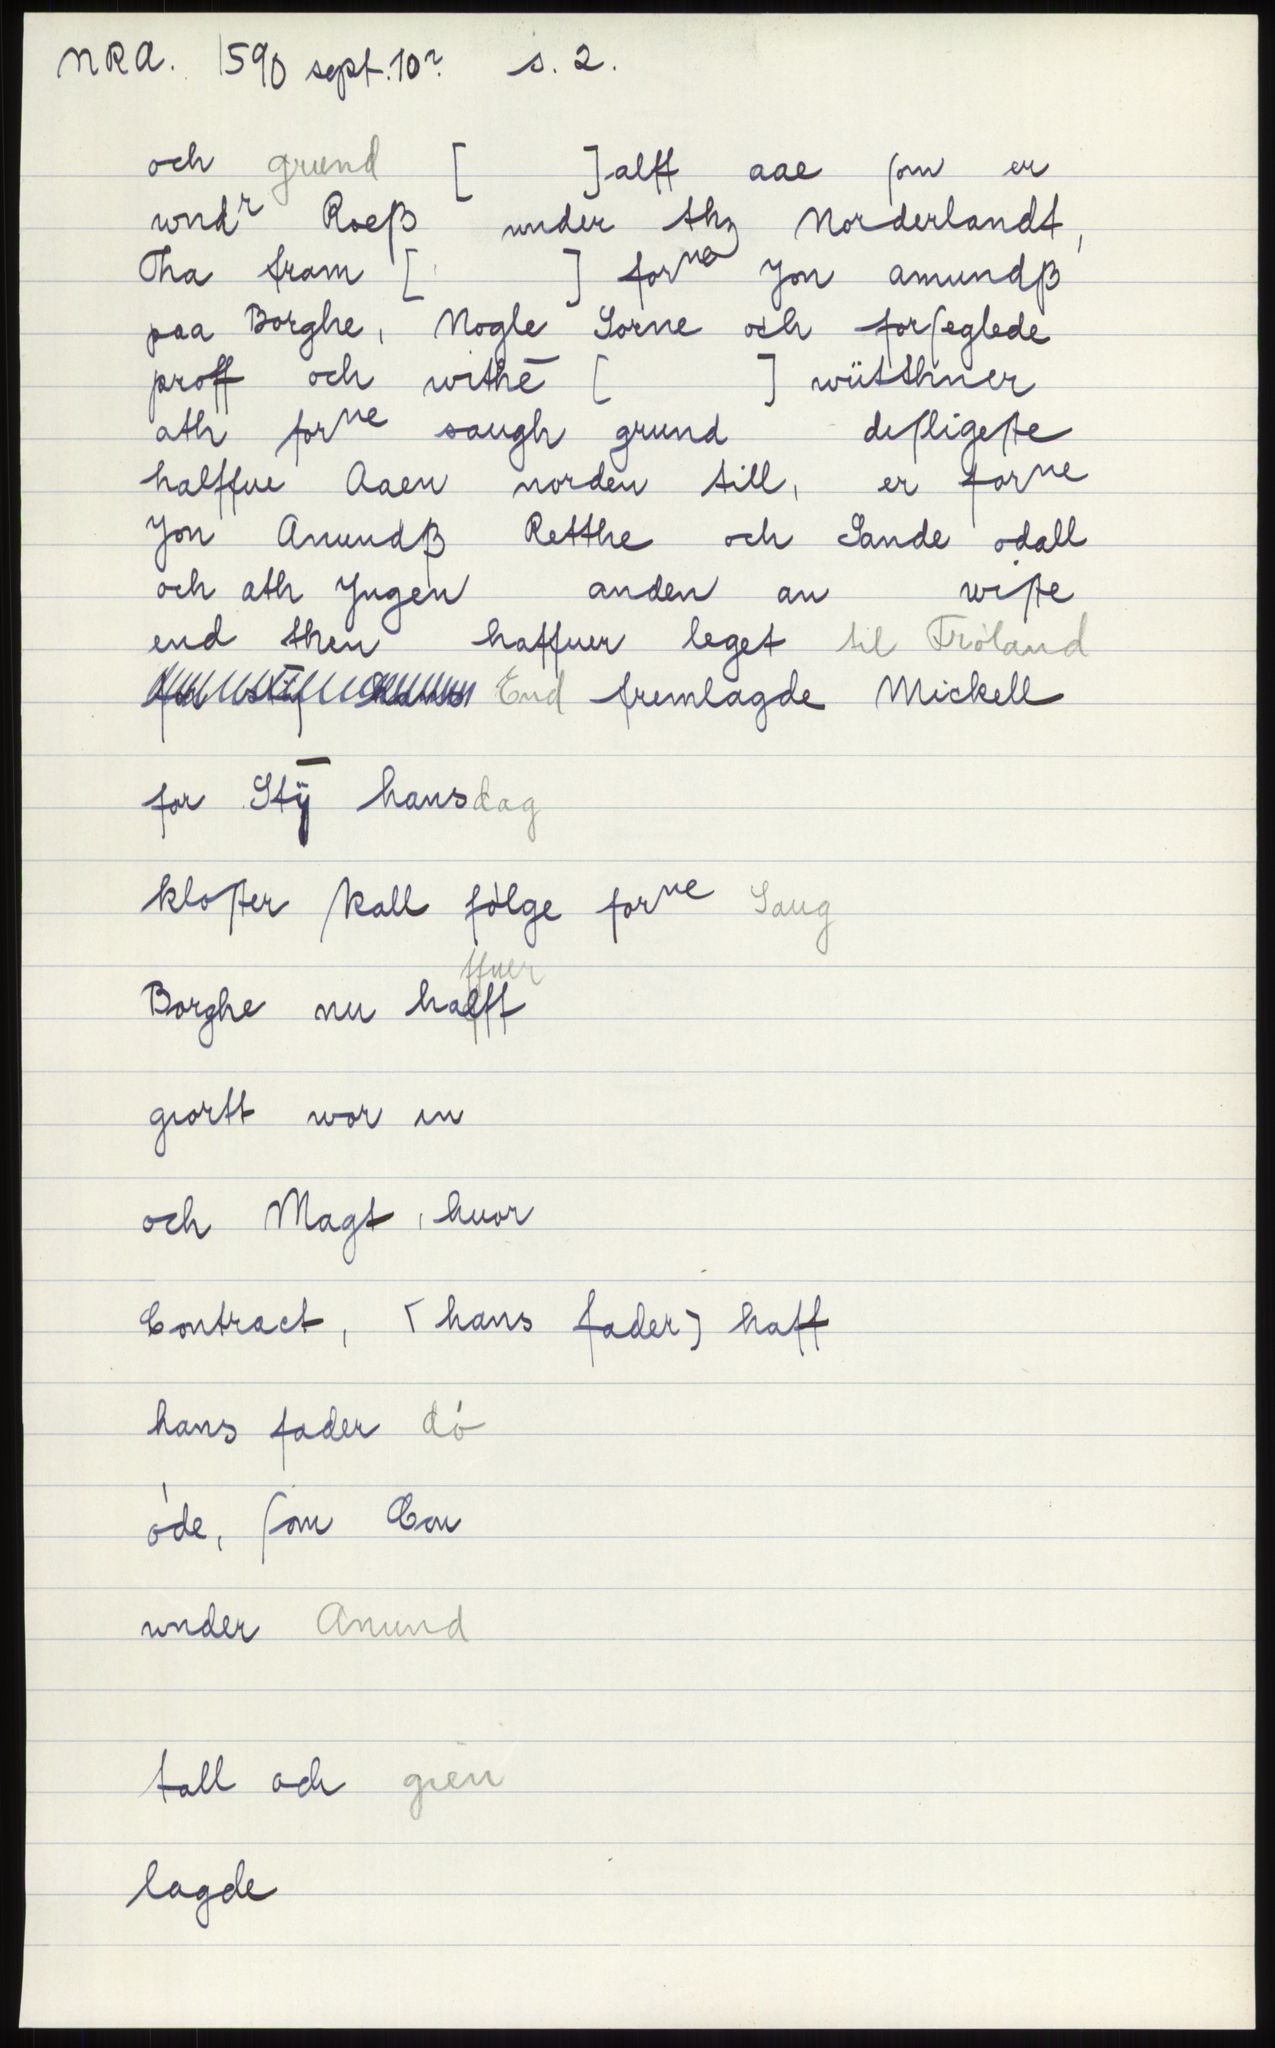 NRA. 1590 sept. 10? s. 2.
och grund [ ] alff aae ſom er
wndr Roeß under thꝫ Norderlandt,
Tha fram [ ] forne Jon amundß
paa Borghe, Nogle Sorne och forſeglede
proff och withē [ ] wütthner
ath forne saugh grund desligeſte
halffue Aaen norden till, er forne
Jon Anundß Retthe och Sande odall
och ath Jngen anden an wiſte
end then haffuer leget til Fróland
End fremlagde Mickell
for Stÿ hansdag
kloſter ſkall fólge forne Saug
ffuer
Borghe nu halfft
giortt wor in
och Magt, huor
Contract, [hans fader] haff
hans fader dó
óde, ſom Con
wnder Anund
tall och gien
lagde